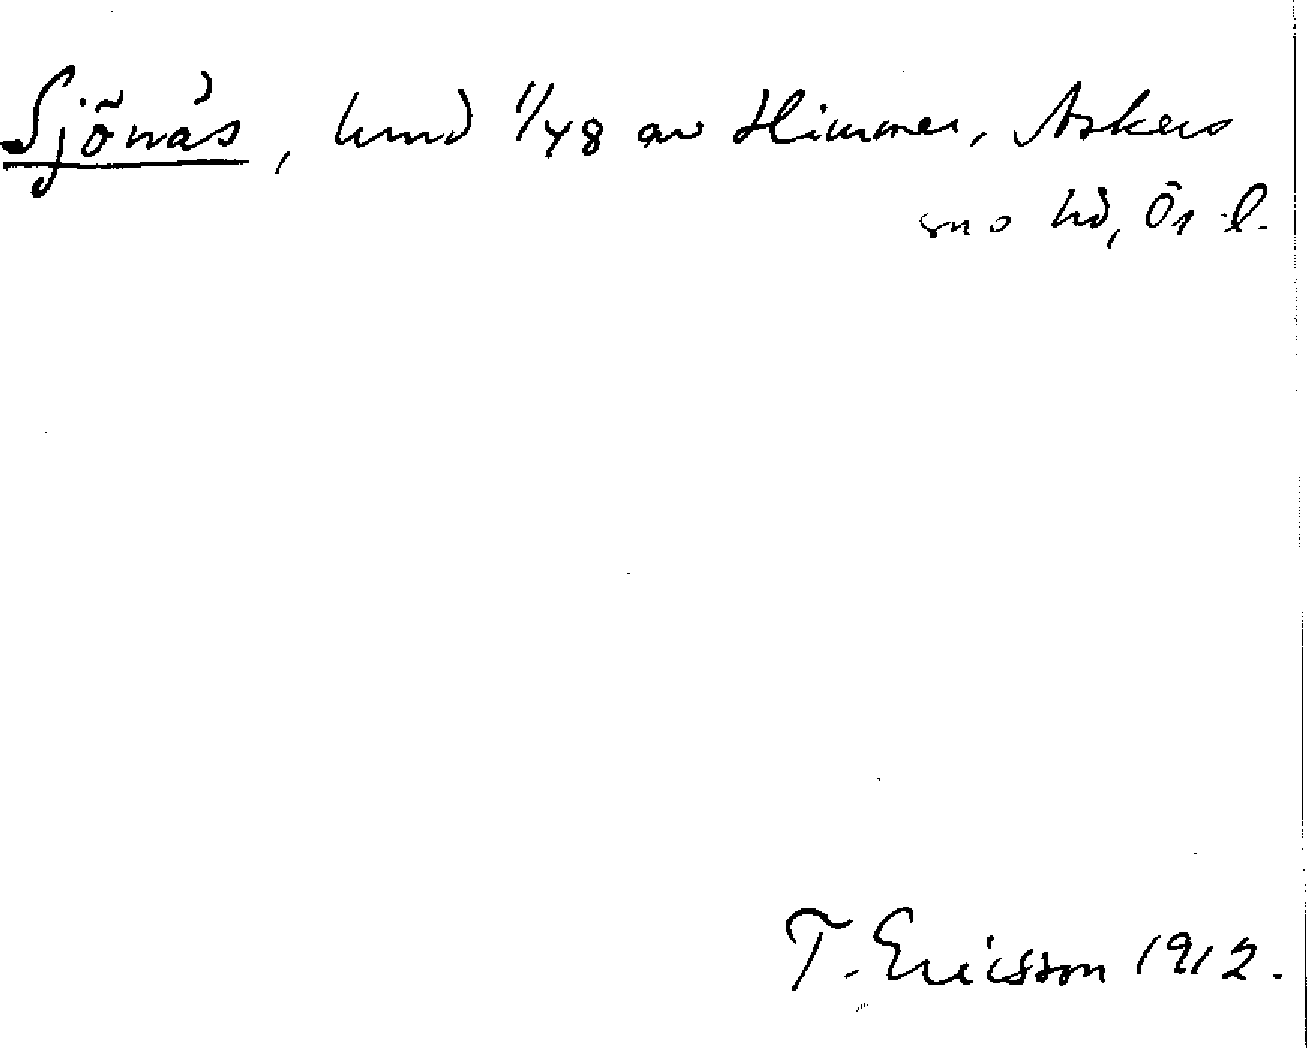 Sjönäs, hmd 1/48 av Himmer, Askers
sn o hd, Ör l.
T. Ericsson 1912.